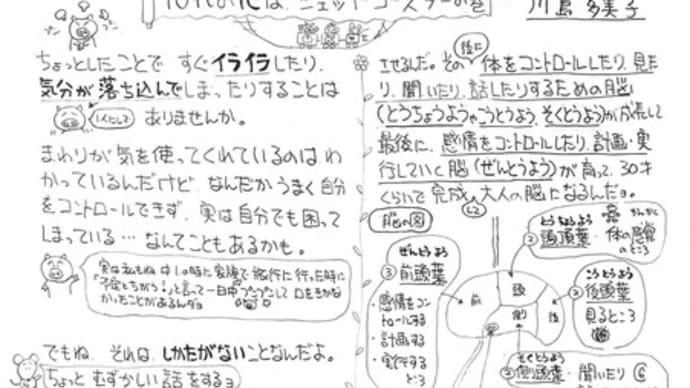 10代の心は、ジェットコースターの巻
川島多美子
ちょっとしたことで すぐイライラしたり、
気分が落ち込んでしまったりすることは
ありませんか。
まわりが気を使ってくれているのはわ
かっているんだけど、なんだかうまく自分
をコントロールできず、実は自分でも困って
しまっている… なんてこともあるかも。
実は私もね 中1の時に家族で旅行に行った時に
「予定とちがう!」と言って一日中プンプンして口をきかな
かったことがあるんダョ
でもね、それは、しかたがないことなんだよ。
ちょっと むずかしい話をするョ
させるんだ。その後に体をコントロールしたり、見た
り、聞いたり、話したりするための脳
(とうちょうようやこうとうよう、そくとうよう)が成長して
最後に、感情をコントロールしたり、計画・実
行していく脳(ぜんとうよう)が育って、30才
くらいで完成し 大人の脳になるんだョ。
脳の図
ぜんとうよう
③前頭葉
・感情をコン
トロールする
・計画する
・実行する
ところ
前
頭
側
後
とうちょうよう
②頭頂葉
・体の感覚
のところ
こうとうよう
②後頭葉
見るところ
そくとうよう
②側頭葉・聞いたり